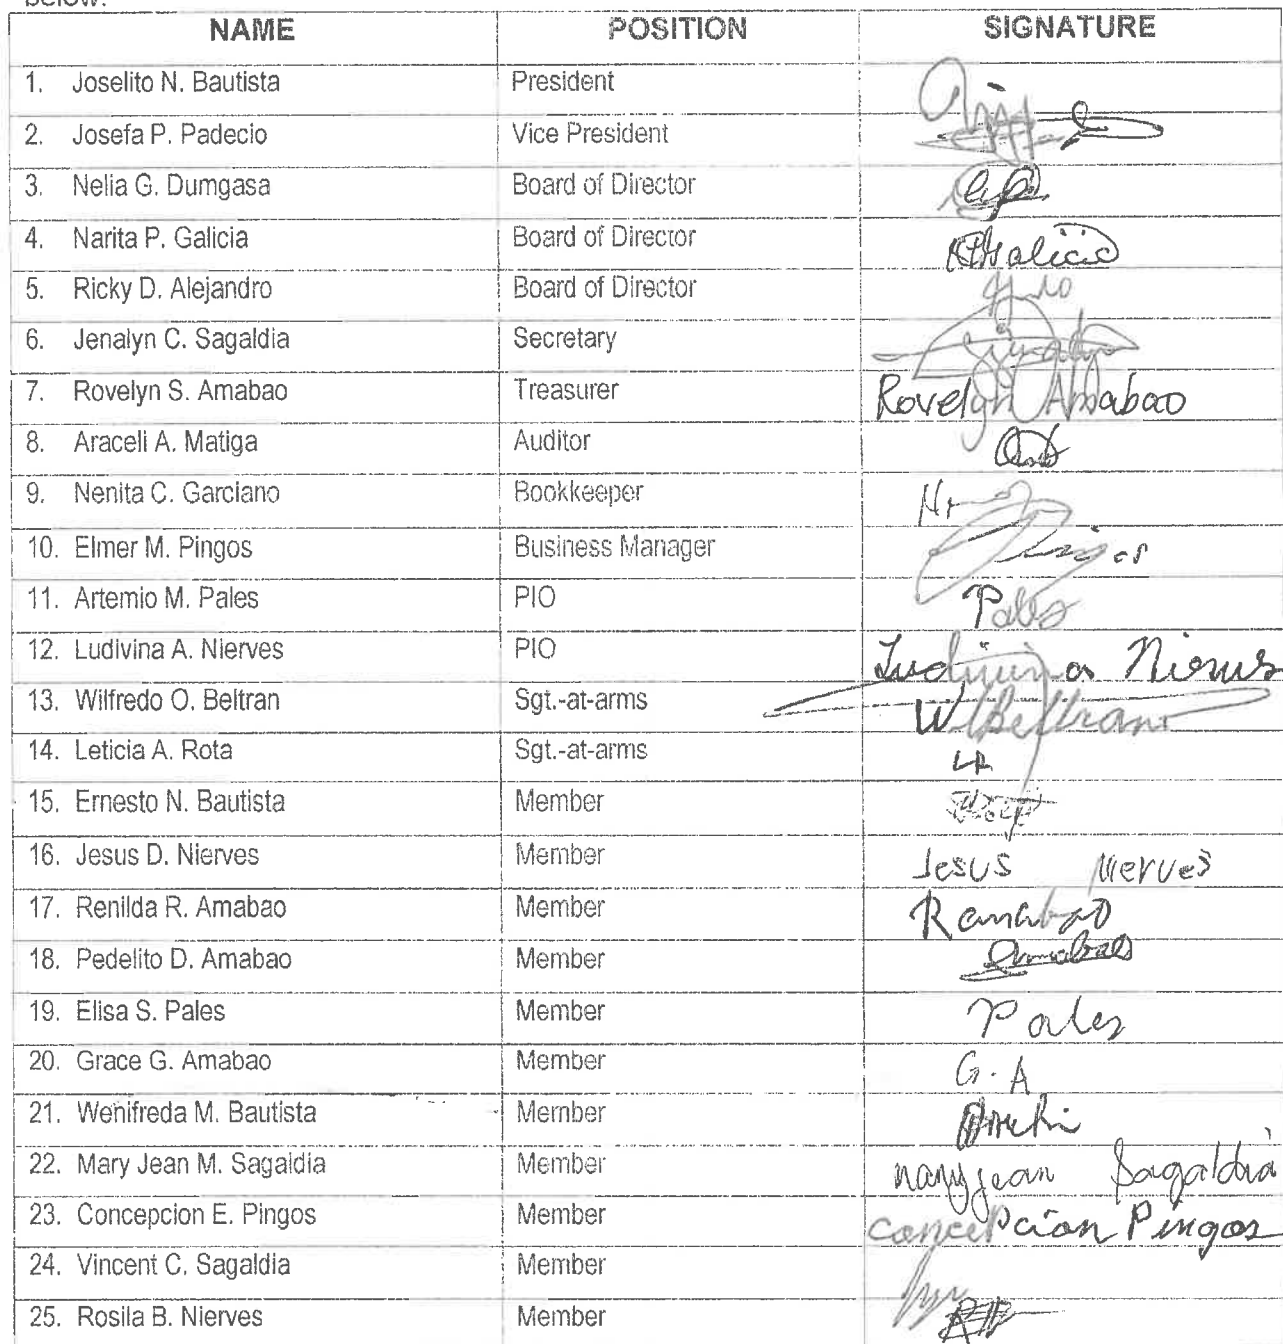 below.
NAME POSITION SIGNATURE
1. Joselito N. Bautista President
2. Josefa P. Padecio Vice President
3. Nelia G. Dumgasa Board of Director
4. Narita P. Galicia Board of Director
5. Ricky D. Alejandro Board of Director
6. Jenalyn C. Sagaldia Secretary
7. Rovelyn S. Amabao Treasurer Rovelyn Amabao
8. Araceli A. Matiga Auditor
9. Nenita C. Garciano Bookkeeper
10. Elmer M. Pingos Business Manager Pingos
11. Artemio M. Pales PIO Pales
12. Ludivina A. Nierves PIO Ludivina Nierves
13. Wilfredo O. Beltran Sgt.-at-arms WBeltran
14. Leticia A. Rota Sgt.-at-arms LR
15. Ernesto N. Bautista Member
16. Jesus D. Nierves Member Jesus Nierves
17. Renilda R. Amabao Member Ramabao
18. Pedelito D. Amabao Member Amabao
19. Elisa S. Pales Member Pales
20. Grace G. Amabao Member G.A
21. Wenifreda M. Bautista Member
22. Mary Jean M. Sagaldia Member mary jean Sagaldia
23. Concepcion E. Pingos Member concepcion Pingos
24. Vincent C. Sagaldia Member
25. Rosila B. Nierves Member